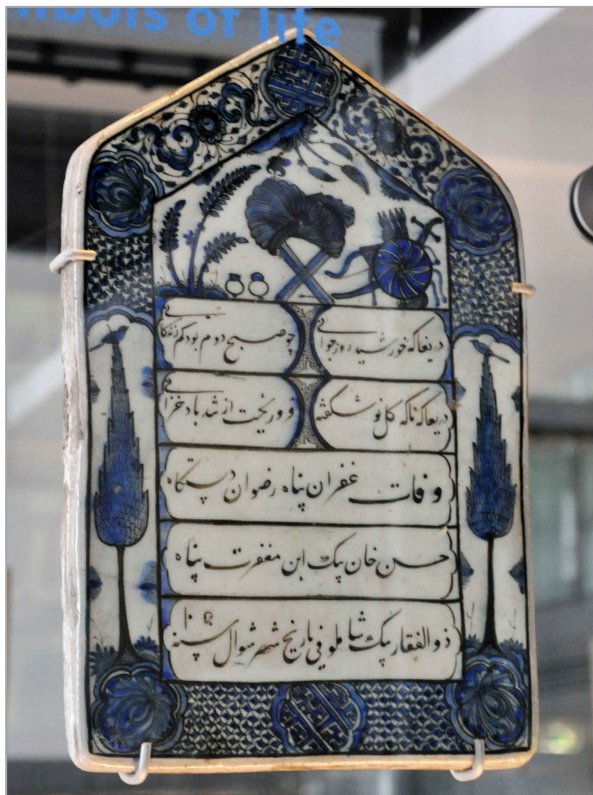 mbols of life
دریغا که خورشید روز جوانی چو صبح دوم بود کم زندگانی
دریغا که ناگه گل نوشکفته فرو ریخت از تند باد خزانی
وفات غفران پناه رضوان دستگاه
حسن خان بیک ابن مغفرت پناه
ذوالفقار بیک شاملو فی تاریخ شهر شوال سنه